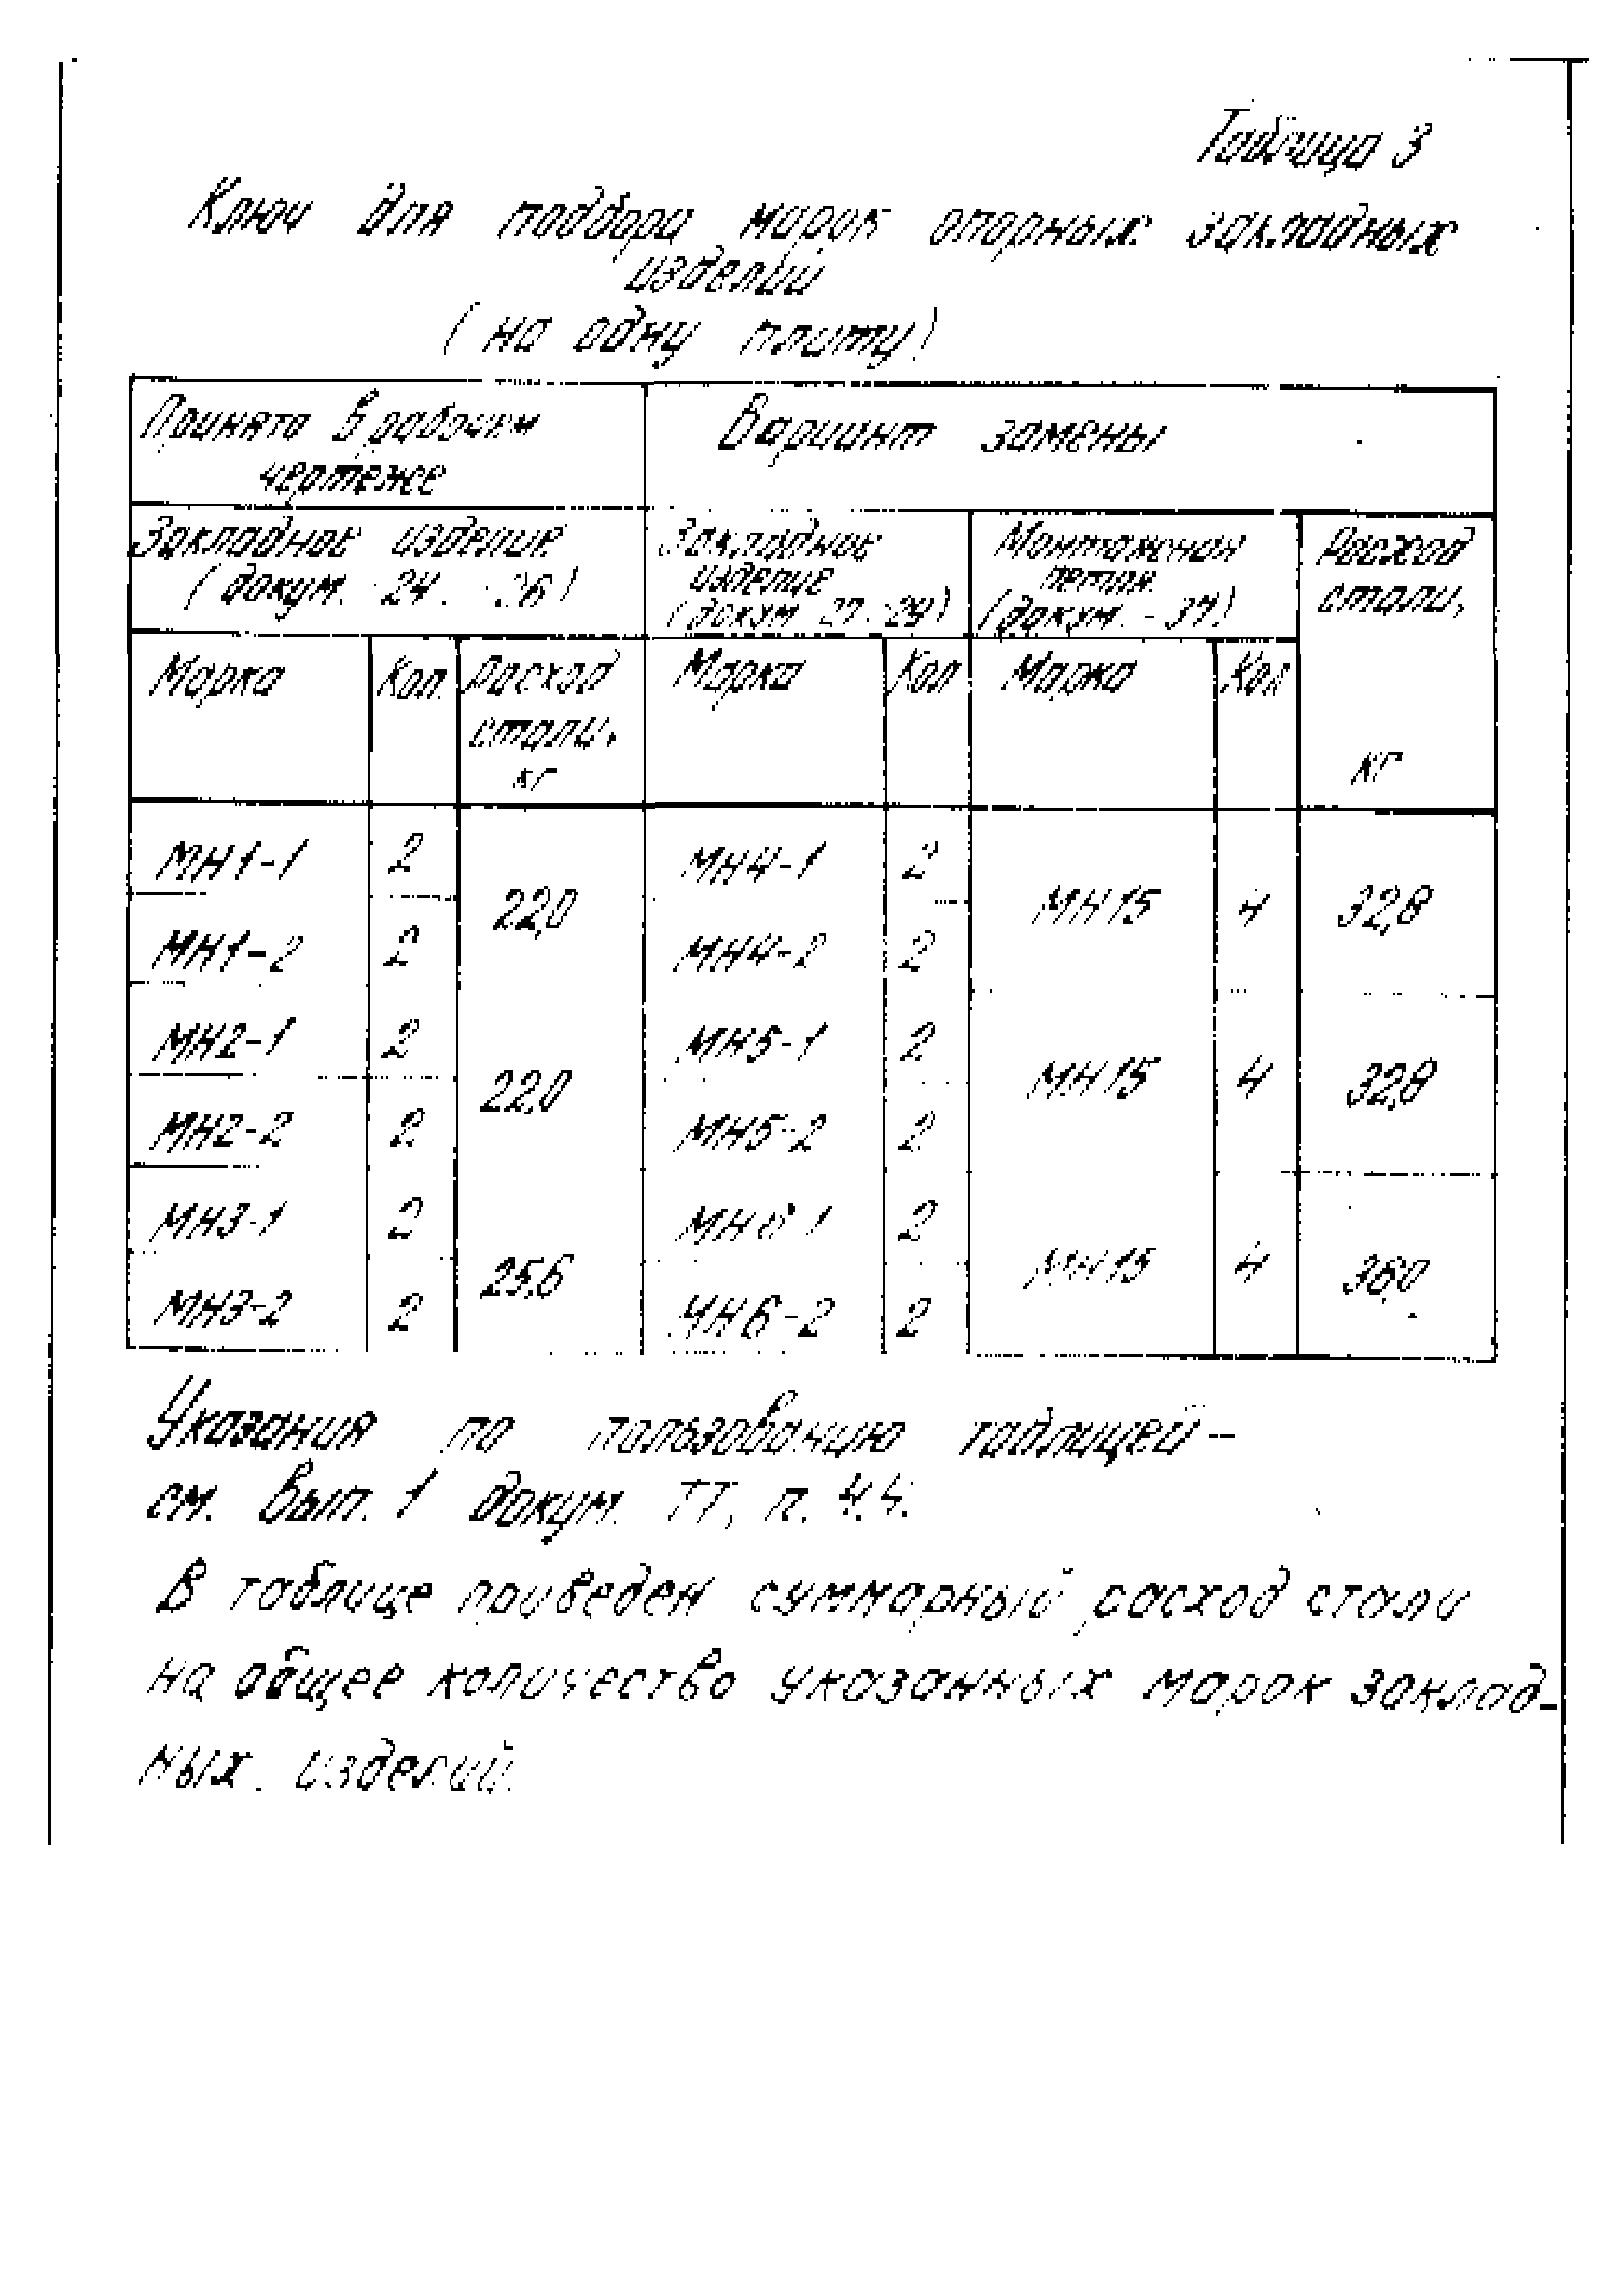 Таблица 3
Ключ для подбора марок опорных закладных
изделий
(на одну плиту)
Принято в рабочем
чертеже
Вариант замены
Закладное изделие
(докум. -24.. -26)
Закладное
изделие
(докум. -27..-29)
Монтажная
петля
(докум. -37)
Расход
стали,
кг
Марка Кол. Расход
стали,
кг
Марка Кол Марка Кол
МН1-1 2 22,0 МН4-1 2 МН15 4 32,8
МН1-2 2 МН4-2 2
МН2-1 2 22,0 МН5-1 2 МН15 4 32,8
МН2-2 2 МН5-2 2
МН3-1 2 25,6 МН6-1 2 МН15 4
МН3-2 2 МН6-2 2
Указания по пользованию таблицей-
см. Вып. 1 докум. ТТ, п.
В таблице приведен суммарный расход стали
на общее количество указанных марок заклад-
ных изделий.